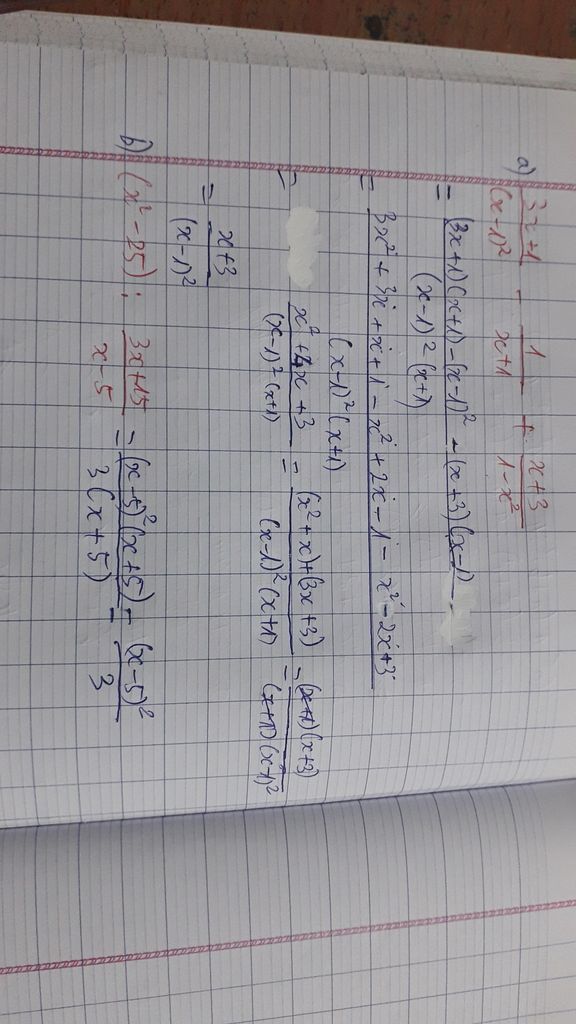 a) \frac{3x+1}{(x-1)^2} - \frac{1}{x+1} + \frac{x+3}{1-x^2}
= \frac{(3x+1)(x+1)-(x-1)^2-(x+3)(x-1)}{(x-1)^2(x+1)}
= \frac{3x^2+3x+x+1-x^2+2x-1-x^2-2x+3}{(x-1)^2(x+1)}
= \frac{x^2+4x+3}{(x-1)^2(x+1)} = \frac{(x^2+x)+(3x+3)}{(x-1)^2(x+1)} = \frac{(x+1)(x+3)}{(x+1)(x-1)^2}
= \frac{x+3}{(x-1)^2}
b) (x^2-25) : \frac{3x+15}{x-5} = \frac{(x-5)^2(x+5)}{3(x+5)} = \frac{(x-5)^2}{3}